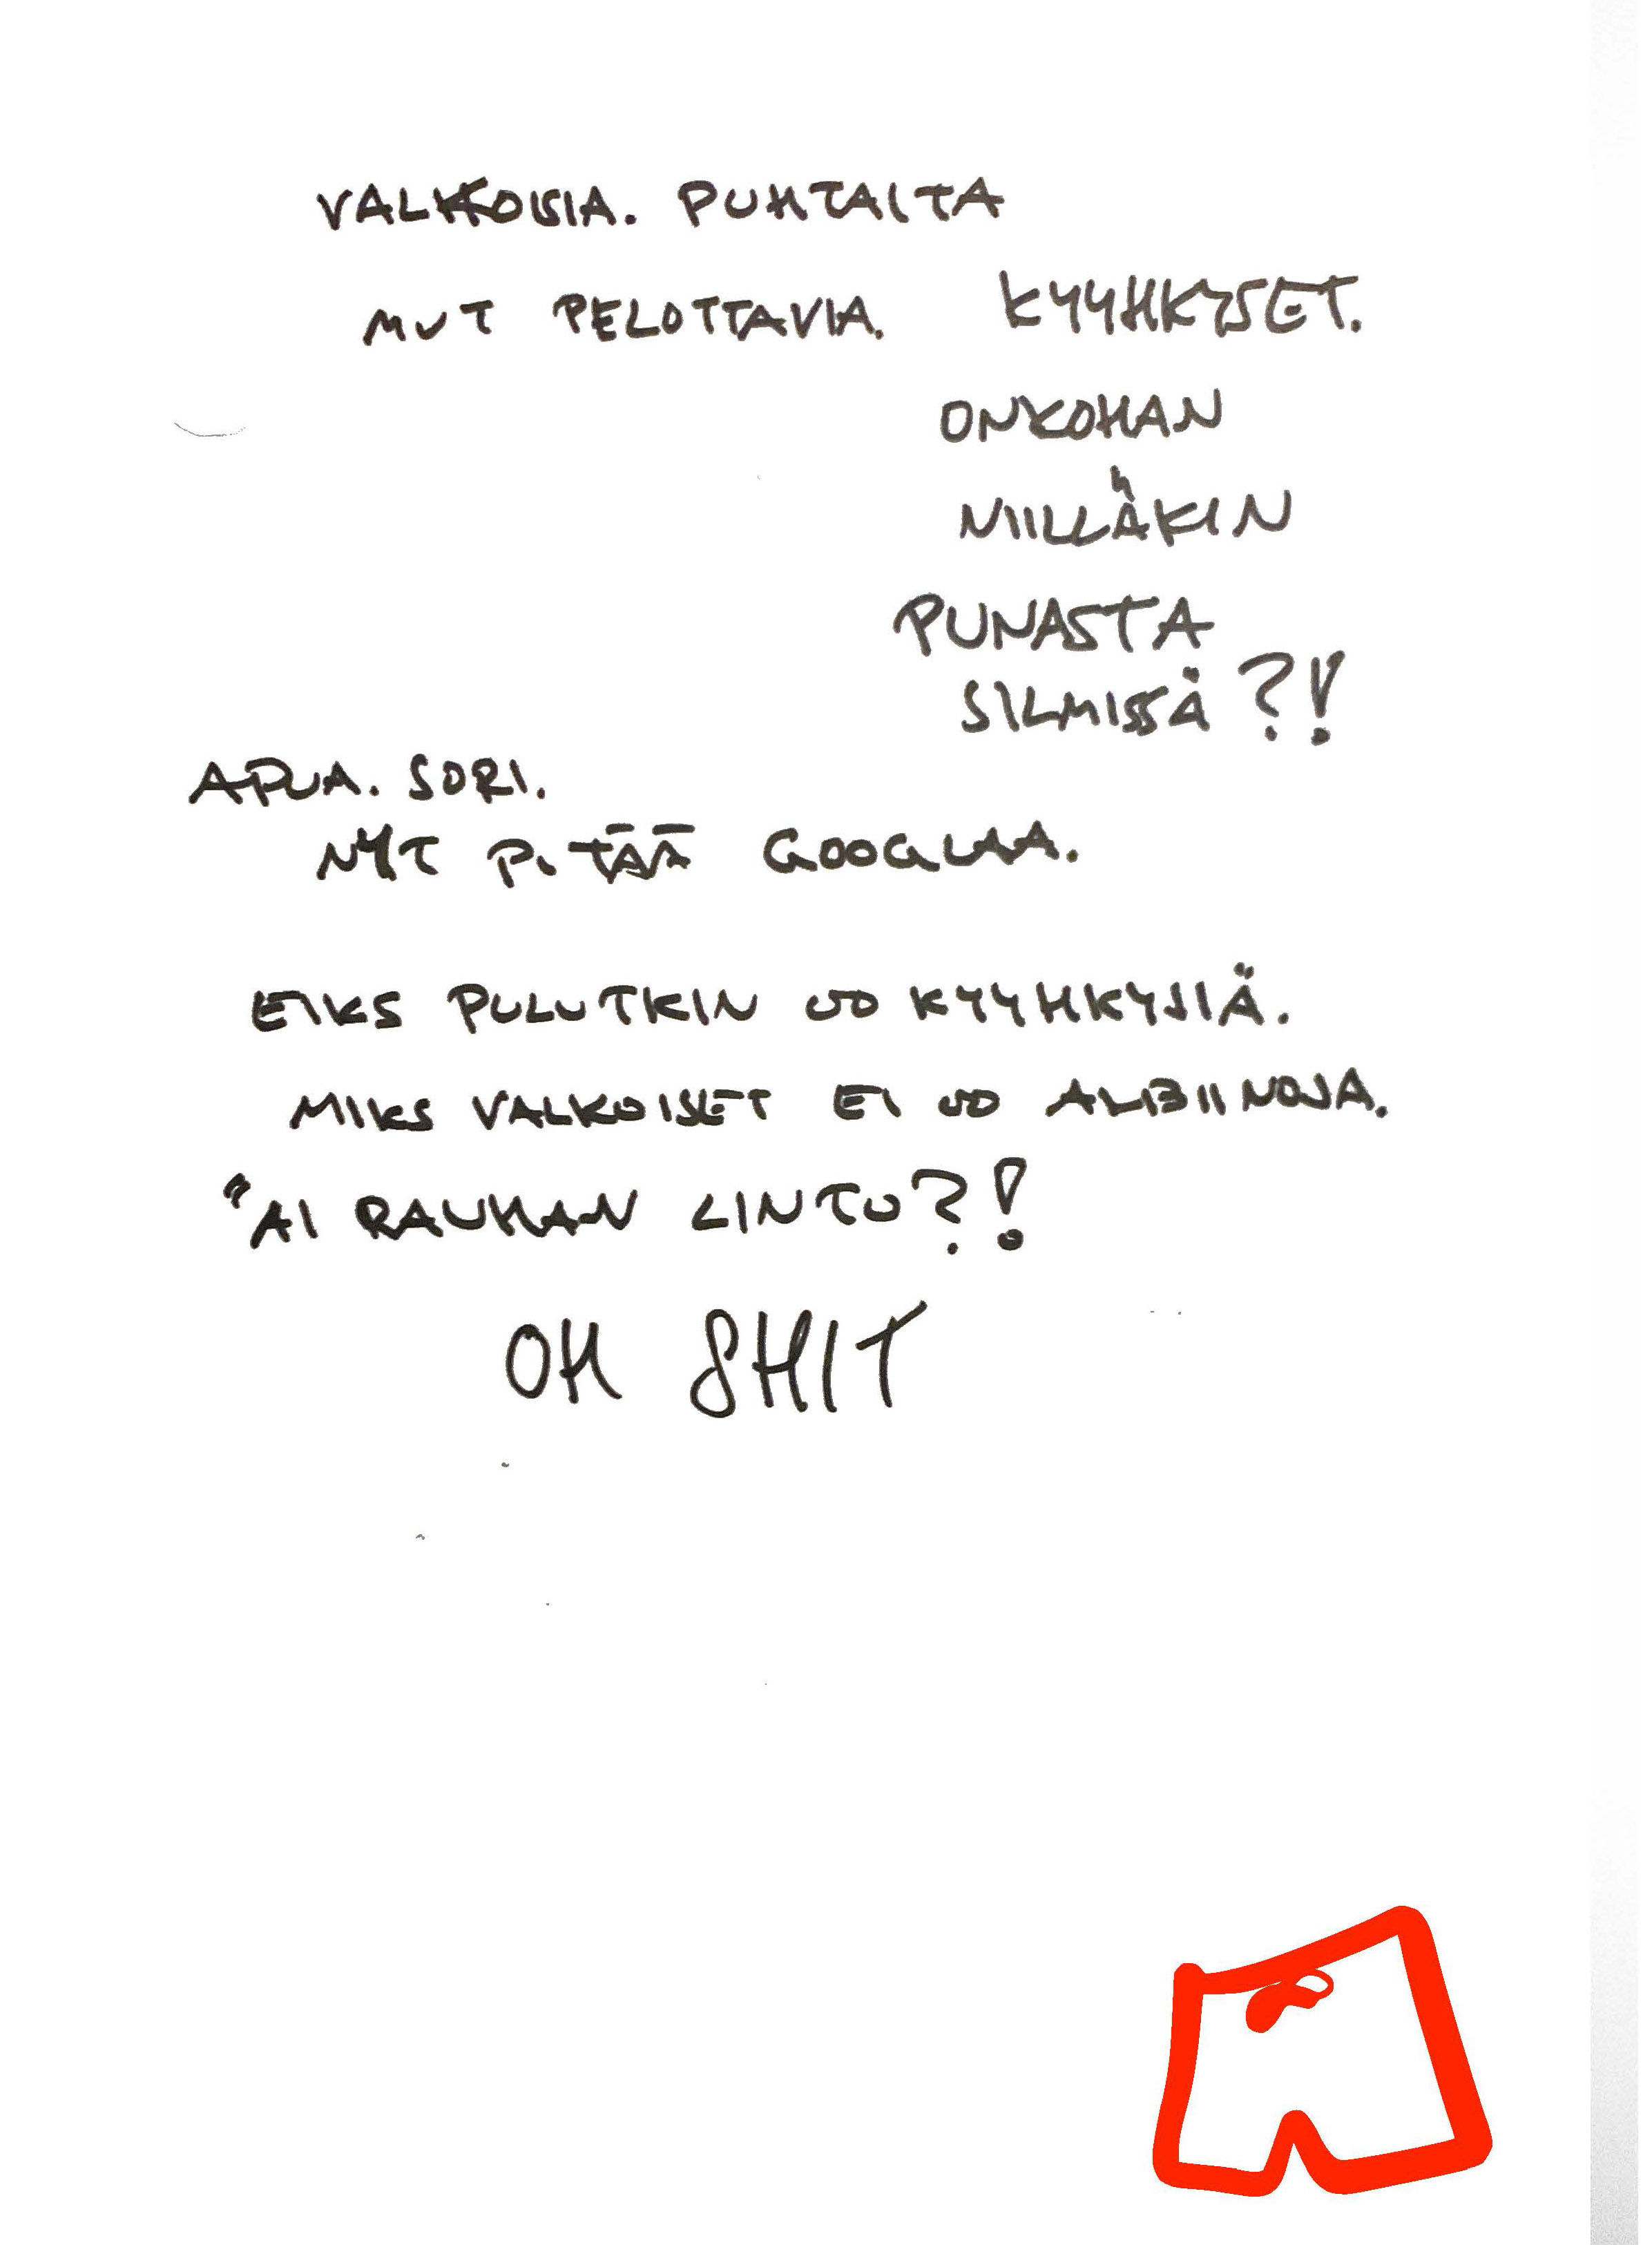 VALKOISIA. PUHTAITA
MUT PELOTTAVIA. KYYHKYSET.
ONKOHAN
NIILLÄKIN
PUNASTA
SILMISSÄ?!
APUA. SORI.
NYT PITÄÄ GOOGLAA.
EIKS PULUTKIN OO KYYHKYSIÄ.
MIKS VALKOISET EI OO ALBIINOJA.
"AI RAUHAN LINTU?!
OH SHIT